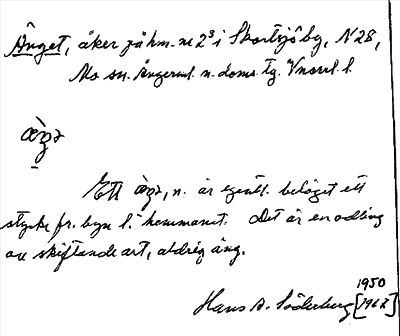 Änget, åker på hm. nr 2³ i Skortsjö by, N 28,
Mo sn. Ångerml. n. doms. tg. Vnorrl. l.
æ̀ŋʒ
Ett æ̀ŋʒ, n. är egentl. beläget ett
stycke fr. byn l. hemmanet. Det är en odling
av skiftande art, aldrig äng.
1950
Hans A. Söderberg [1967]